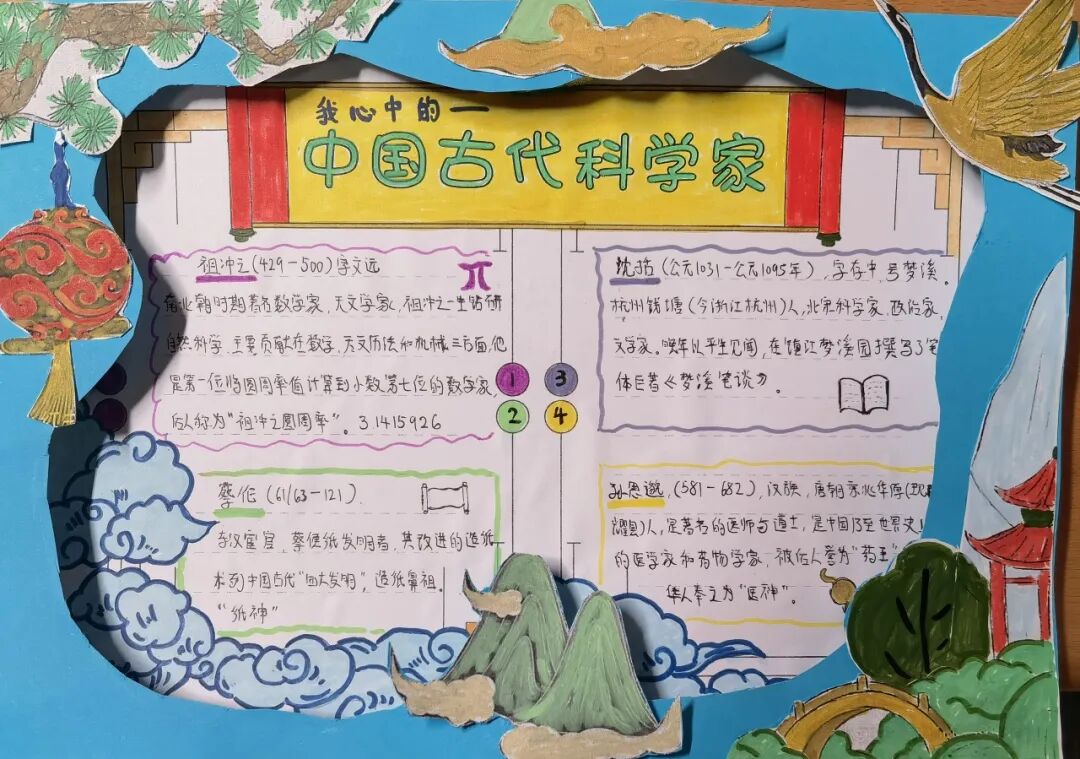 我心中的一
中国古代科学家
祖冲之(429-500)字文远
南北朝时期著名数学家、天文学家,祖冲之一生钻研
自然科学,主要贡献在数学、天文历法和机械三方面,他
是第一位将圆周率值计算到小数第七位的数学家,
后人称为“祖冲之圆周率”。3.1415926
π
蔡伦(61/63-121).
东汉宦官,蔡侯纸发明者,其改进的造纸
术列中国古代“四大发明”,造纸鼻祖.
“纸神”
1
2
3
4
沈括(公元1031-公元1095年),字存中,号梦溪。
杭州钱塘(今浙江杭州)人,北宋科学家、政治家,
文学家。晚年以平生见闻,在镇江梦溪园撰写了笔
体巨著《梦溪笔谈》。
孙思邈,(581-682),汉族,唐朝京兆华原(现
耀县)人,是著名的医师与道士,是中国乃至世界史
的医学家和药物学家,被后人誉为“药王”
华人奉之为“医神”。